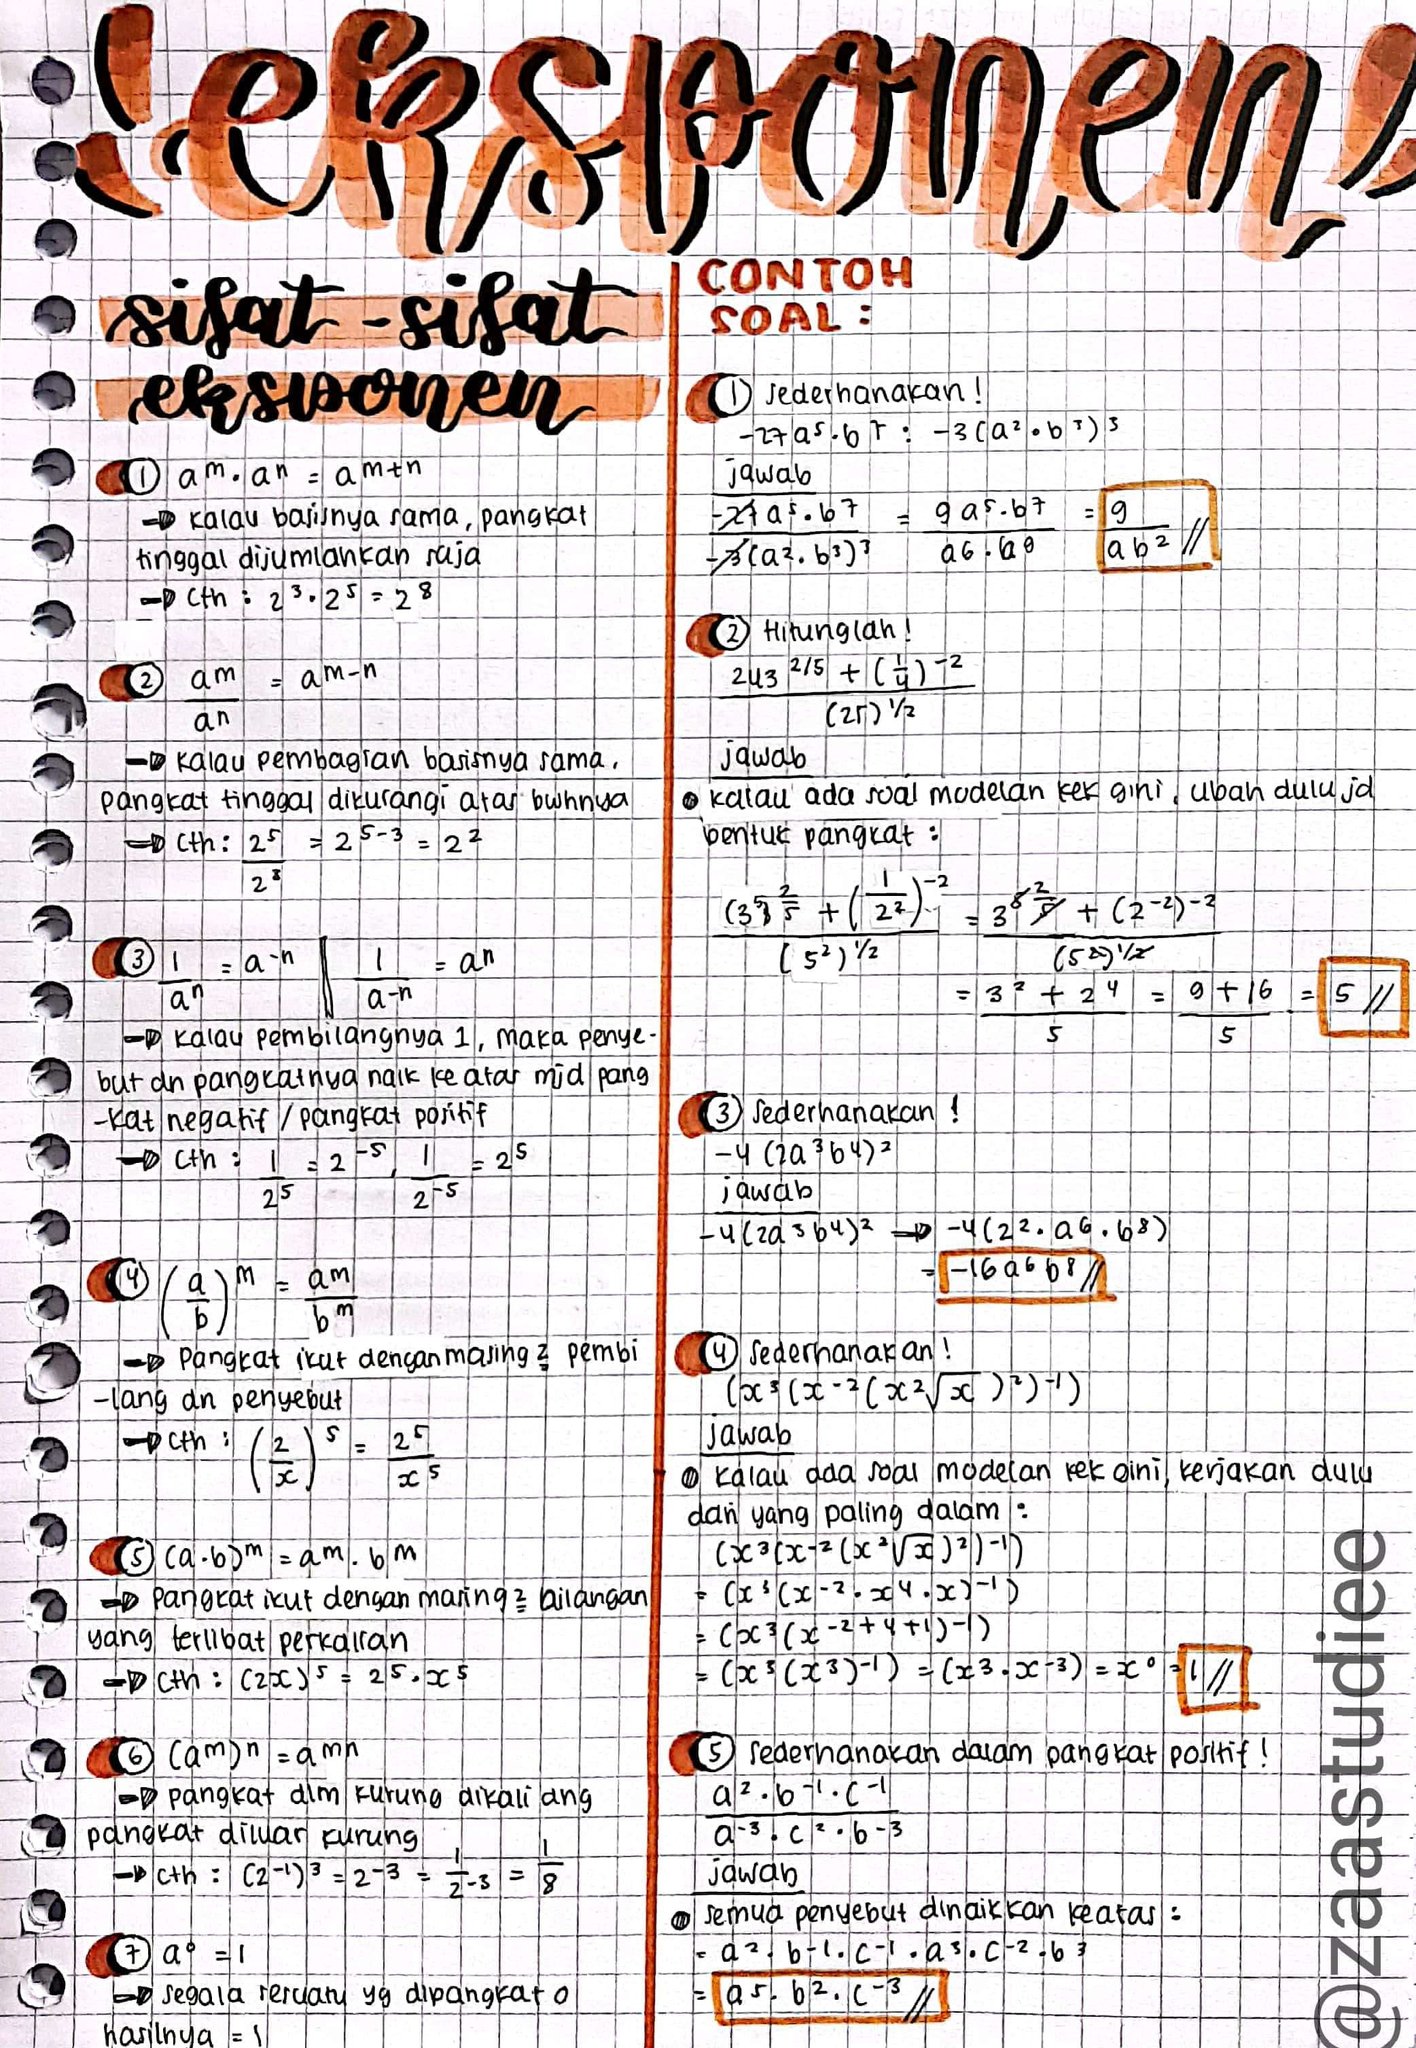 eksponen
sifat-sifat
eksponen
① a^m . a^n = a^(m+n)
→ kalau basisnya sama, pangkat
tinggal dijumlahkan saja
→ Cth : 2^3 . 2^5 = 2^8
② a^m / a^n = a^(m-n)
→ kalau pembagian basisnya sama,
pangkat tinggal dikurangi atas bwhnya
→ Cth : 2^5 / 2^3 = 2^(5-3) = 2^2
③ 1 / a^n = a^-n || 1 / a^-n = a^n
→ kalau pembilangnya 1, maka penye-
but dn pangkatnya naik ke atas mjd pang
-kat negatif / pangkat positif
→ Cth : 1 / 2^5 = 2^-5, 1 / 2^-5 = 2^5
④ (a/b)^m = a^m / b^m
→ Pangkat ikut dengan masing2 pembi
-lang dn penyebut
→ cth : (2/x)^5 = 2^5 / x^5
⑤ (a.b)^m = a^m . b^m
→ pangkat ikut dengan masing2 bilangan
yang terlibat perkalian
→ Cth : (2x)^5 = 2^5 . x^5
⑥ (a^m)^n = a^mn
→ pangkat dlm kurung dikali dng
pangkat diluar kurung
→ cth : (2^-1)^3 = 2^-3 = 1 / 2^-3 = 1/8
⑦ a^0 = 1
→ segala sesuatu yg dipangkat 0
hasilnya = 1
CONTOH
SOAL :
① sederhanakan!
-27a^5 . b^7 : -3(a^2 . b^3)^3
jawab
-27a^5 . b^7 / -3(a^2 . b^3)^3 = 9a^5 . b^7 / a^6 . b^9 = 9 / ab^2 //
② Hitunglah!
243^(2/5) + (1/4)^-2 / (25)^1/2
jawab
• kalau ada soal modelan kek gini, ubah dulu jd
bentuk pangkat :
(3^5)^(2/5) + (1/2^2)^-2 / (5^2)^1/2 = 3^5^(2/5) + (2^-2)^-2 / (5^2)^1/2
= 3^2 + 2^4 / 5 = 9 + 16 / 5 = 5 //
③ sederhanakan!
-4(2a^3b^4)^2
jawab
-4(2a^3b^4)^2 → -4(2^2 . a^6 . b^8)
= -16a^6b^8 //
④ sederhanakan!
(x^3(x^-2(x^2√x)^2)^-1)
jawab
• kalau ada soal modelan kek gini, kerjakan dulu
dari yang paling dalam :
(x^3(x^-2(x^2√x)^2)^-1)
= (x^3(x^-2 . x^4 . x)^-1)
= (x^3(x^(-2+4+1))^-1)
= (x^3(x^3)^-1) = (x^3 . x^-3) = x^0 = 1 //
⑤ sederhanakan dalam pangkat positif!
a^2 . b^-1 . c^-1 / a^-3 . c^2 . b^-3
jawab
• semua penyebut dinaikkan keatas :
= a^2 . b^-1 . c^-1 . a^3 . c^-2 . b^3
= a^5 . b^2 . c^-3 //
@zaastudiee